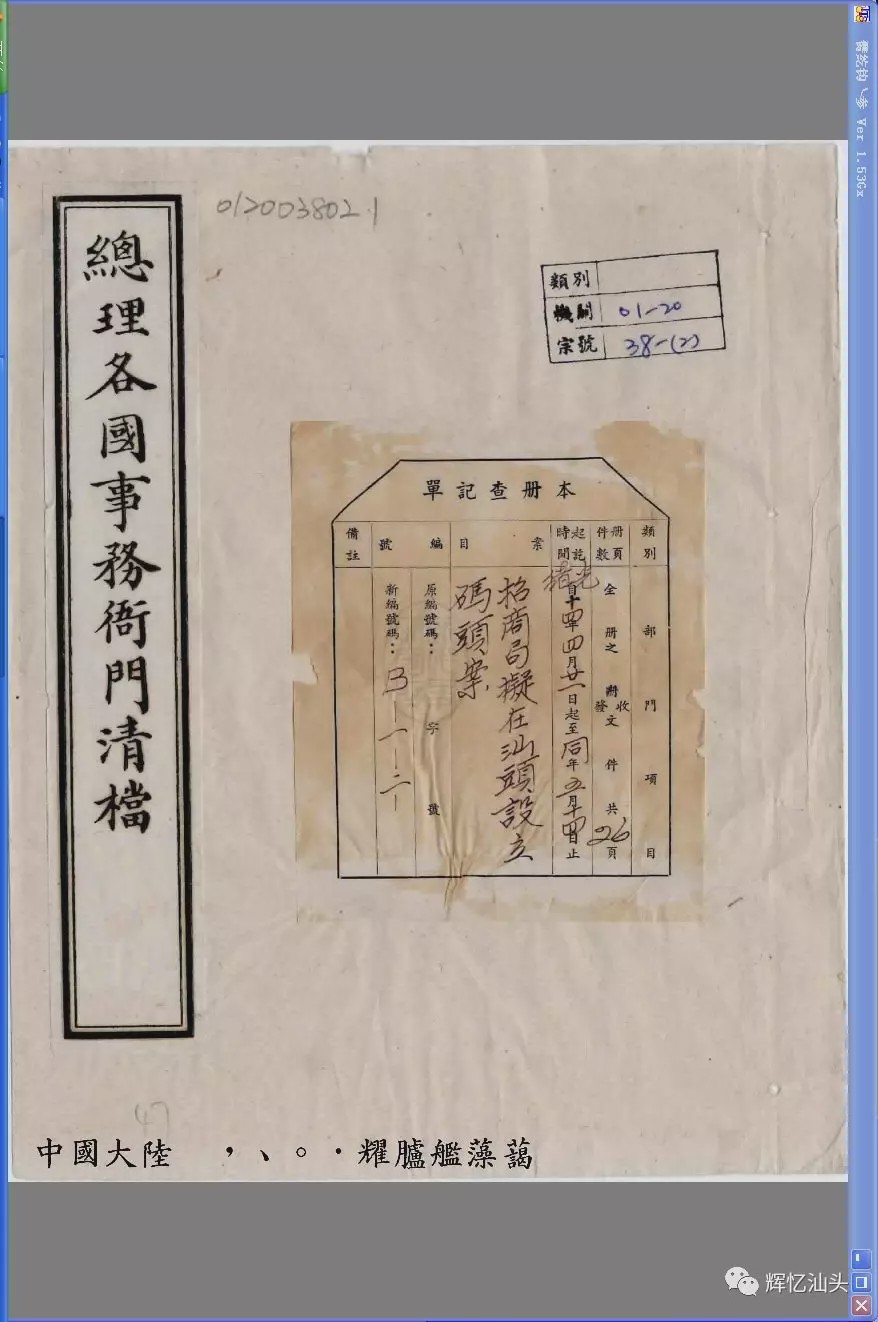 012003802.1
類別
機關 01-20
宗號 38-(2)
總理各國事務衙門清檔
本册查記單
類別 部門項目
册頁件數 全册之收發文件共26頁
起訖時間 光緒自十四年四月廿一日起至同年五月十四日止
案目 招商局擬在汕頭設立
碼頭案
編號 原編號碼：字號
新編號碼：B-一-二-
備註
47
中國大陸 ，、。·耀臚艦藻藹
Ver 1.53Gx
辉忆汕头